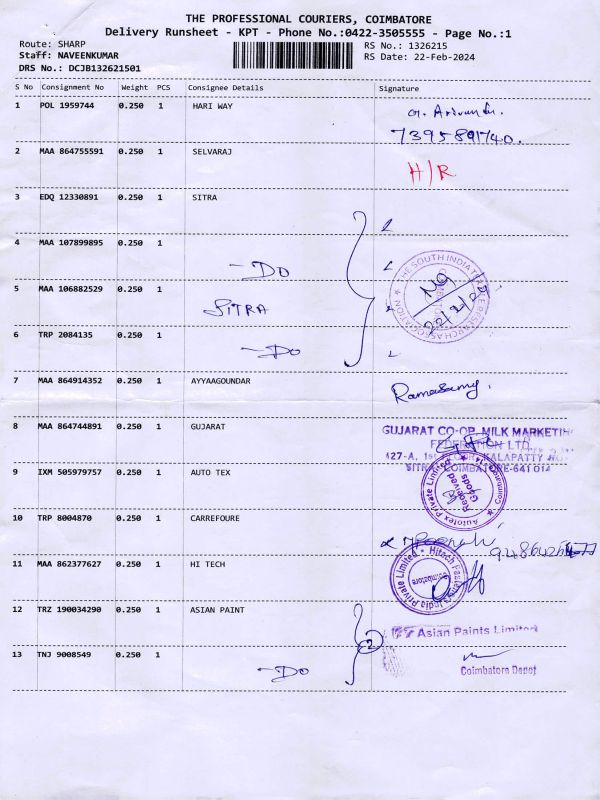 THE PROFESSIONAL COURIERS, COIMBATORE
Delivery Runsheet - KPT - Phone No.:0422-3505555 - Page No.:1
Route: SHARP
RS No.: 1326215
Staff: NAVEENKUMAR
RS Date: 22-Feb-2024
DRS No.: DCJB132621501
S No Consignment No Weight PCS Consignee Details Signature
1 POL 1959744 0.250 1 HARI WAY
7395891740.
2 MAA 864755591 0.250 1 SELVARAJ H/R
3 EDQ 12330891 0.250 1 SITRA
4 MAA 107899895 0.250 1
-DO
5 MAA 106882529 0.250 1
SITRA
6 TRP 2084135 0.250 1
-DO
7 MAA 864914352 0.250 1 AYYAAGOUNDAR Ramasamy.
8 MAA 864744891 0.250 1 GUJARAT
GUJARAT CO-OP. MILK MARKETING
FEDERATION LTD.
COIMBATORE-641 014
9 IXM 505979757 0.250 1 AUTO TEX
Autotex Private Limited
Received
Goods
Coimbatore
10 TRP 8004870 0.250 1 CARREFOURE
11 MAA 862377627 0.250 1 HI TECH
Coimbatore
12 TRZ 190034290 0.250 1 ASIAN PAINT
2
Asian Paints Limited
13 TNJ 9008549 0.250 1
-DO
Coimbatore Depot